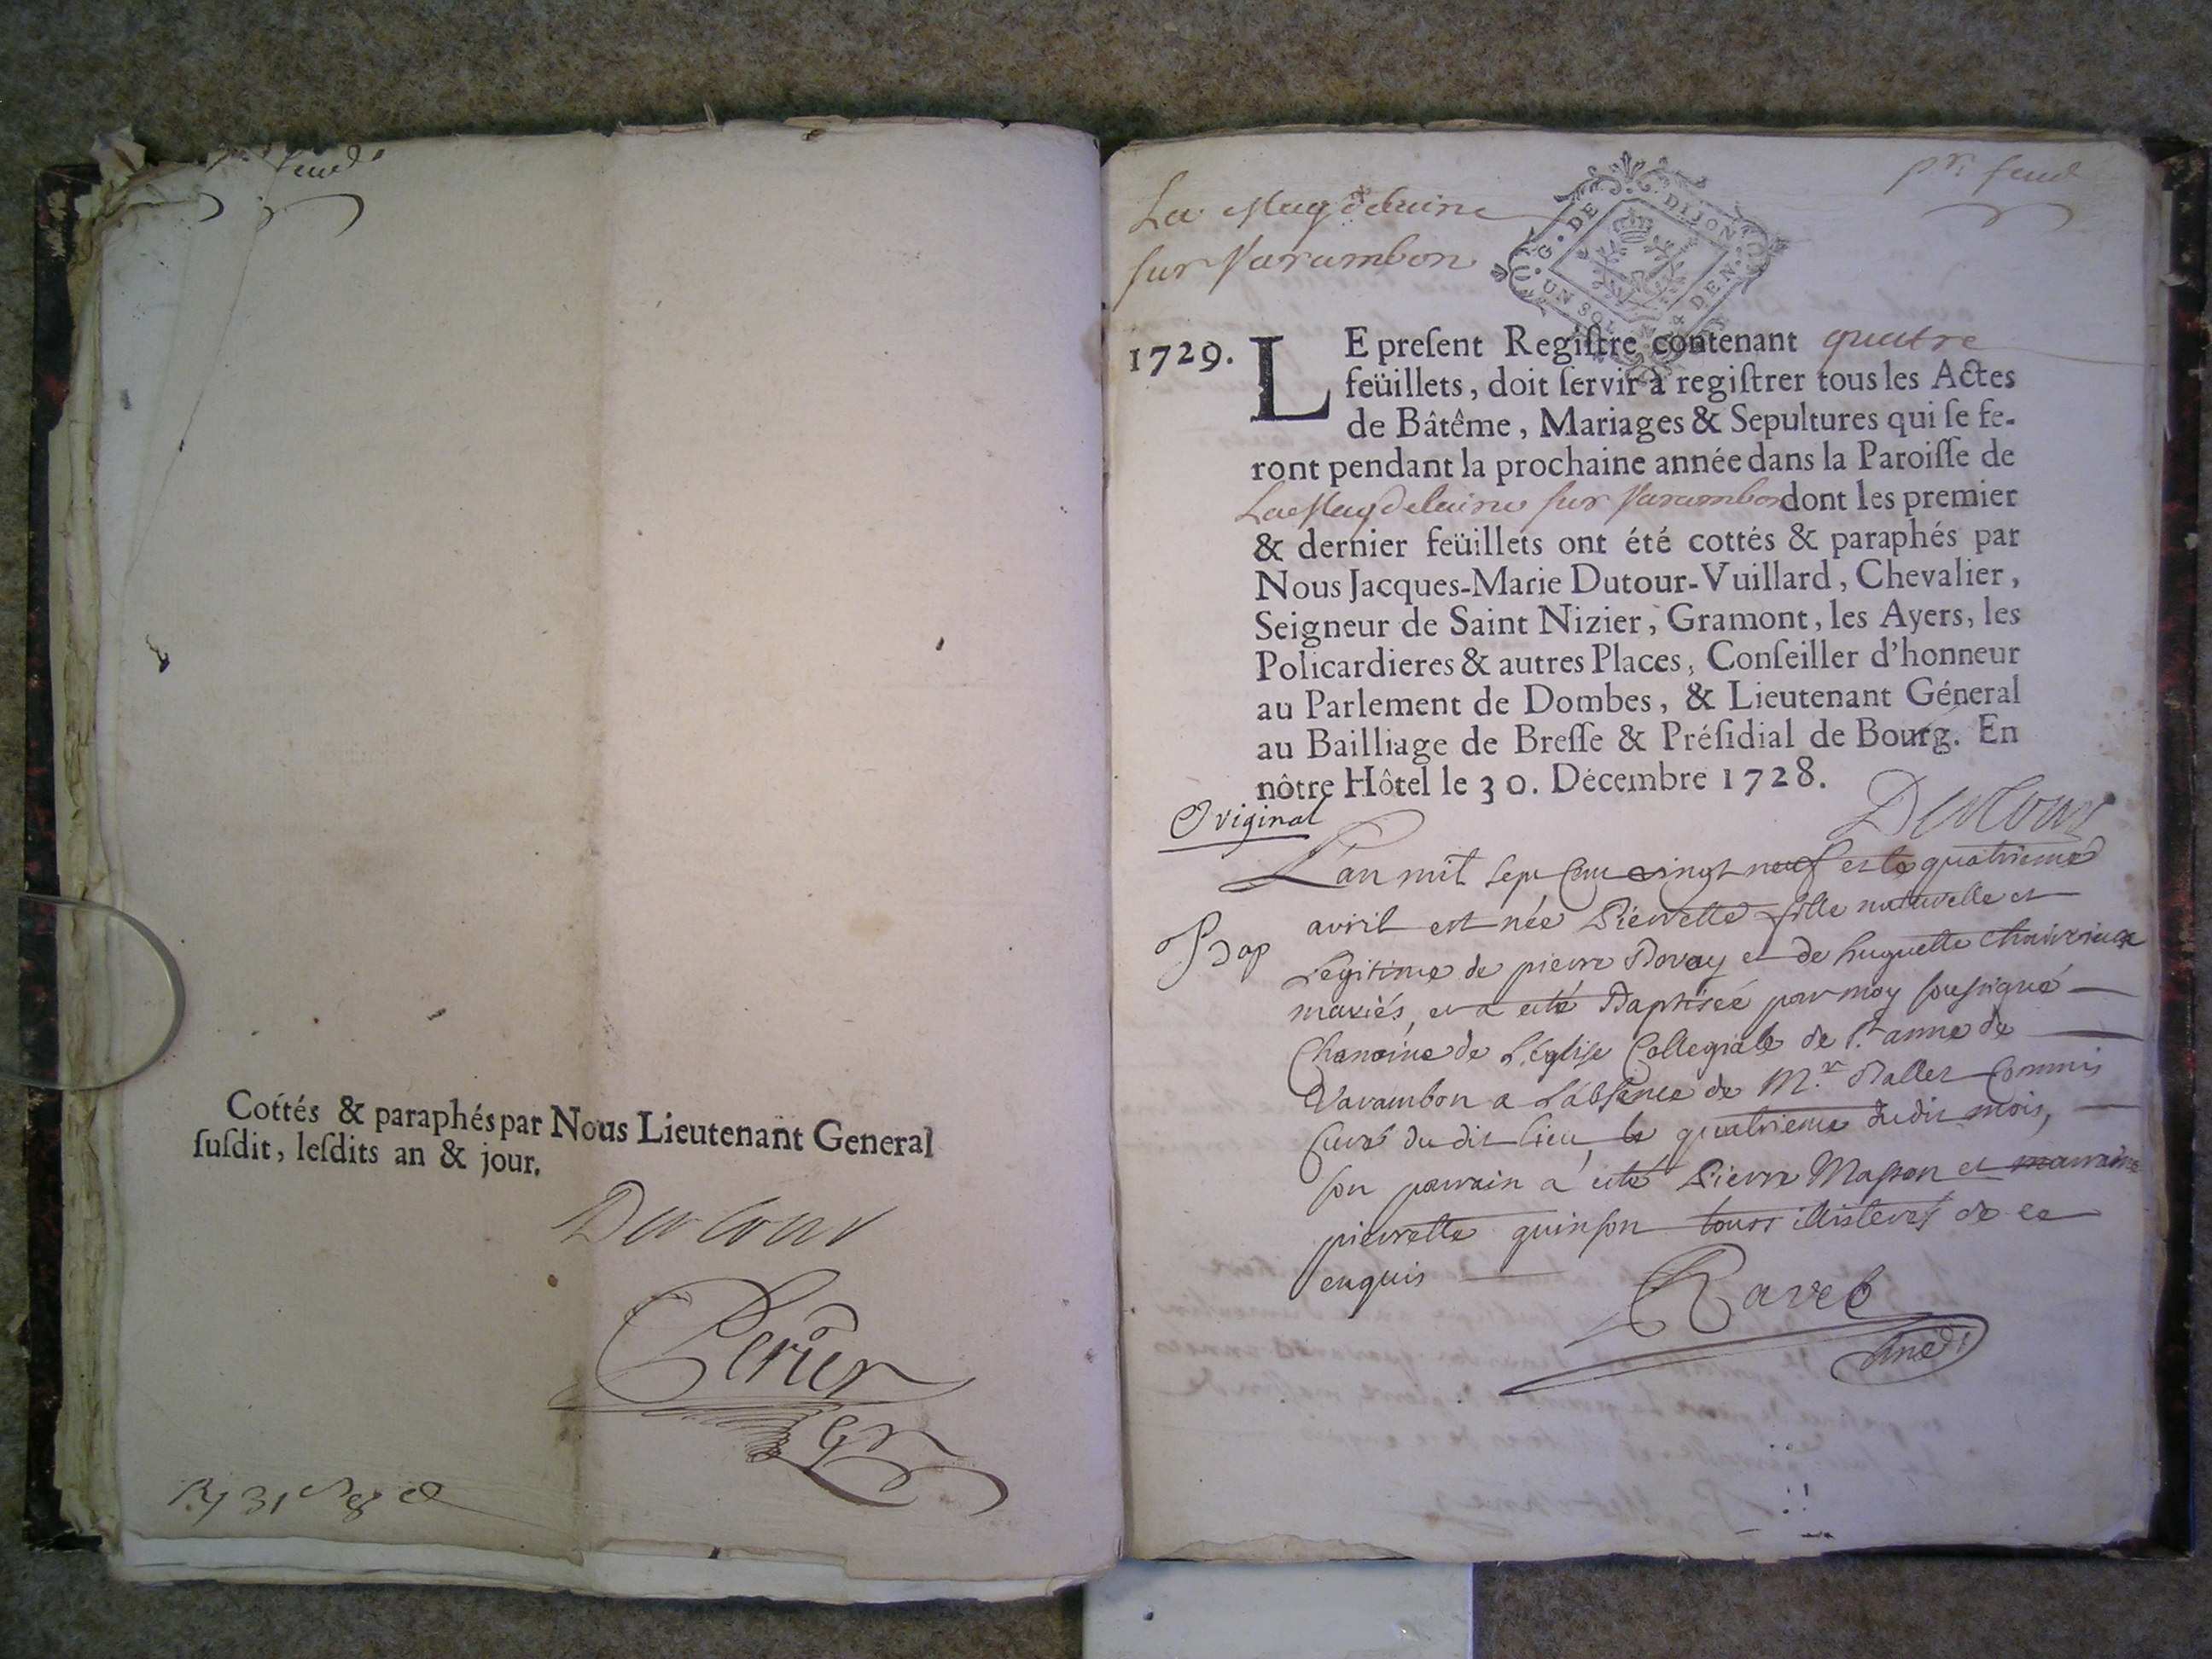 feuil
Cottés & paraphés par Nous Lieutenant General
ſuſdit, leſdits an & jour.
Dutour
Perier
La Magdelaine
ſur Varambon
pr. feuil
G. DE DIJON
UN SOL DEN.
1729.
LE preſent Regiſtre contenant quatre
feüillets, doit ſervir à regiſtrer tous les Actes
de Bâtême, Mariages & Sepultures qui ſe fe-
ront pendant la prochaine année dans la Paroiſſe de
La Magdelaine ſur Varambon dont les premier
& dernier feüillets ont été cottés & paraphés par
Nous Jacques-Marie Dutour-Vuillard, Chevalier,
Seigneur de Saint Nizier, Gramont, les Ayers, les
Policardieres & autres Places, Conſeiller d'honneur
au Parlement de Dombes, & Lieutenant Géneral
au Bailliage de Breſſe & Préſidial de Bourg. En
nôtre Hôtel le 30. Décembre 1728.
Dutour
Original
L'an mil sept cent vingt neuf et le quatrieme
Bap
avril est née Pierrette fille naturelle et
Legitime de pierre Bovay et de huguette
mariés, et a eité Baptisée par moy soussigné
Chanoine de L'église Collegiale de St anne de
Varambon a L'absence de Mr. Ballet Commis
Curé du dit lieu, le quatrieme dudit mois,
son parrain a eité Pierre Masson et marraine
pierrette quinson touss illisteres de ce
enquis
Ravet